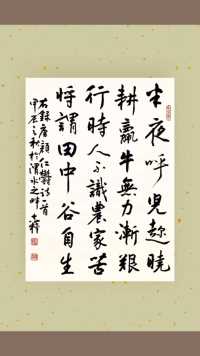 半夜呼兒趁曉
耕羸牛無力漸艱
行時人不識農家苦
將謂田中谷自生
右錄唐顏仁鬱詩一首
甲辰之秋於渭水之畔